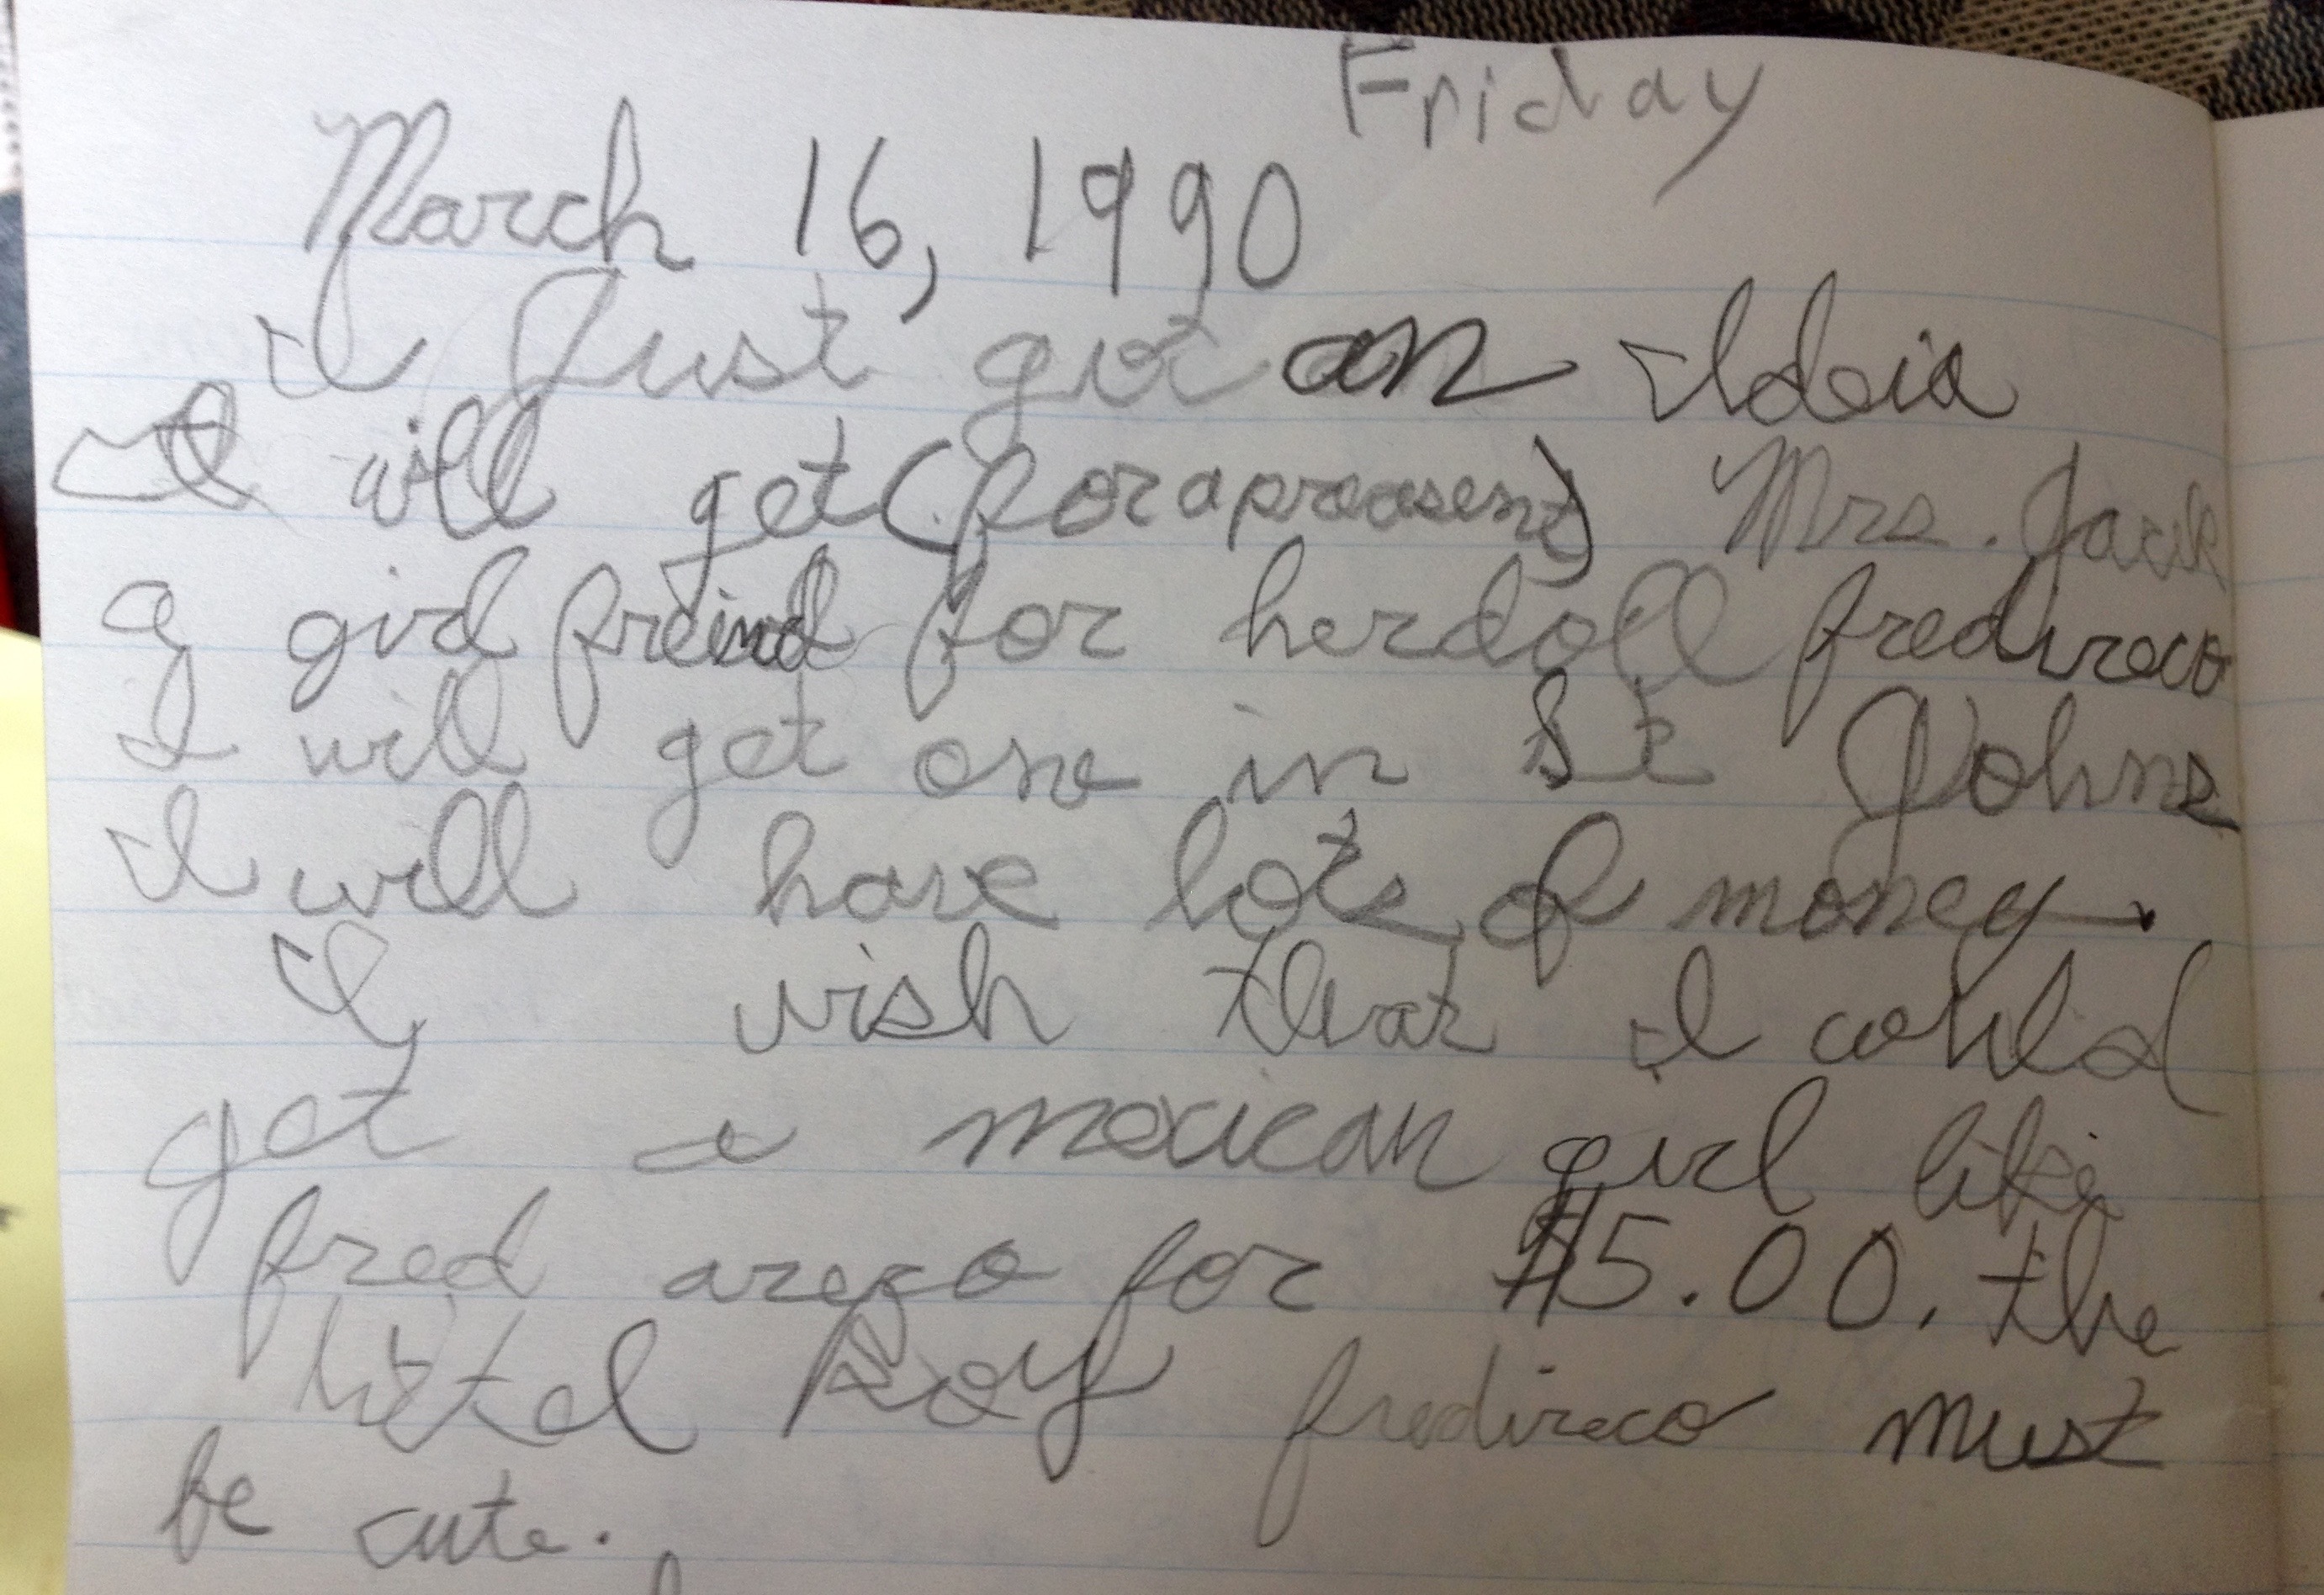 Friday
March 16, 1990
I Just got an Ideia
I will get (for a preasent) Mrs. Jack
a girl freind for her doll fredireco
I will get one in St Johns
I will have lots of money.
I wish that I could
get a mexican girl like
fred areco for $5.00. the
littel boy fredireco must
be cute.